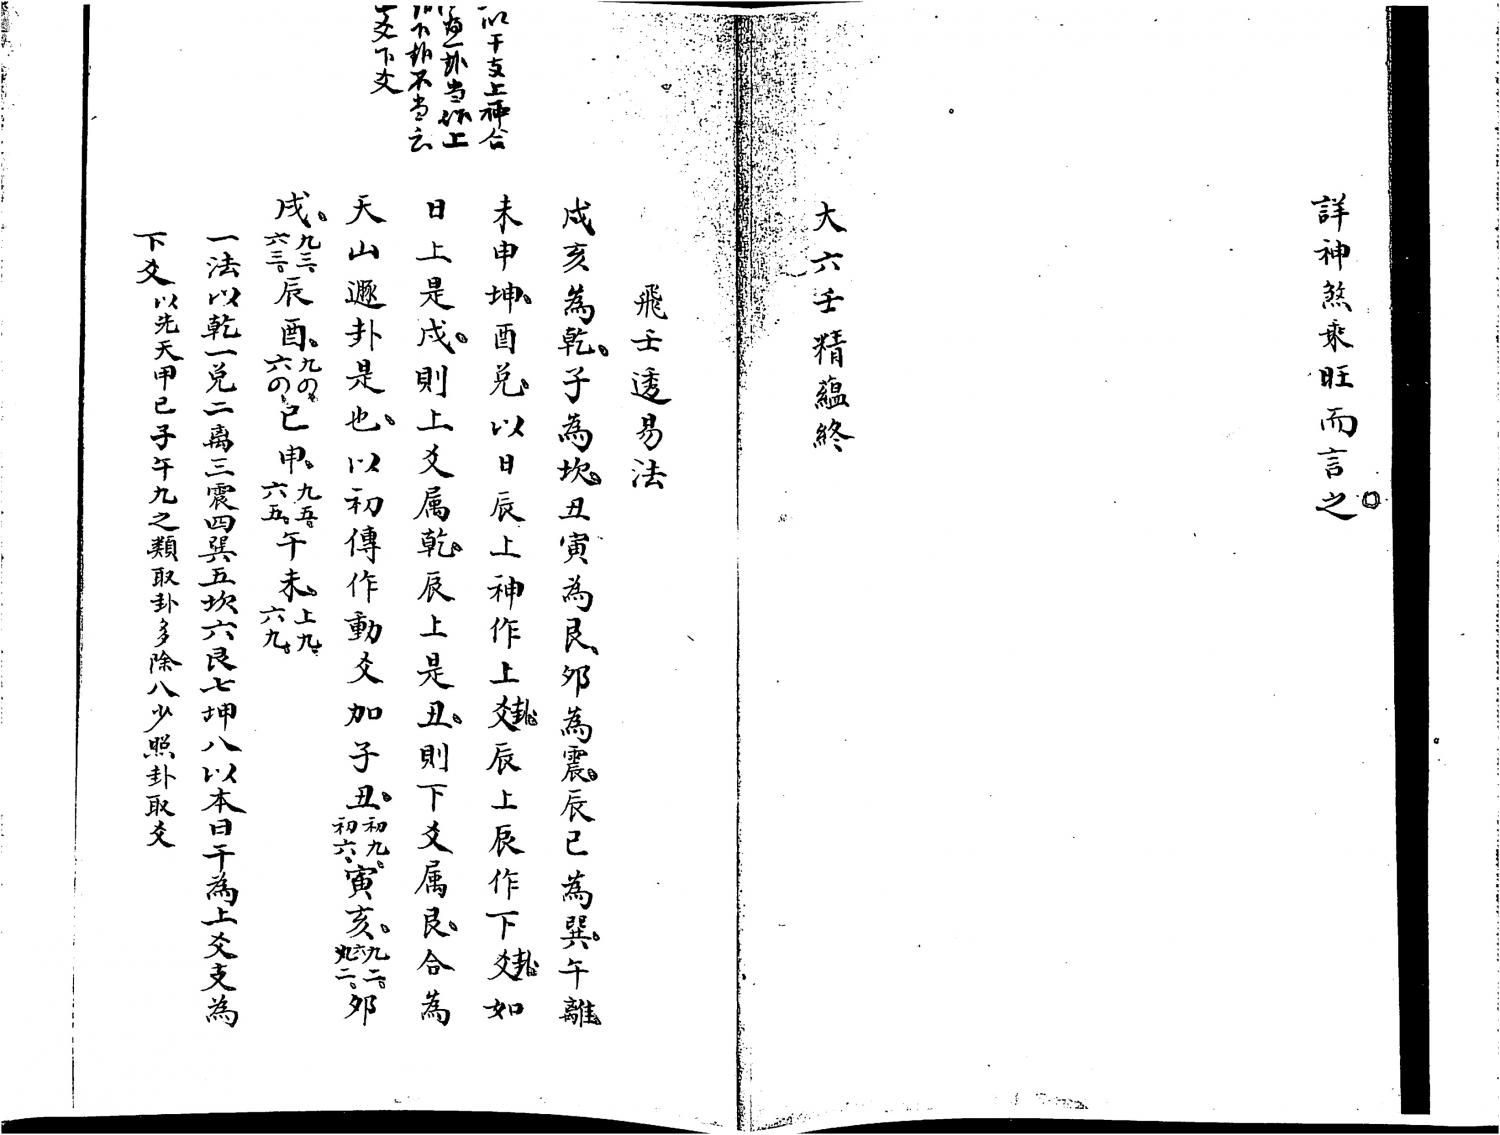 詳神煞乘旺而言之
大六壬精蘊終
飛壬透易法
戌亥為乾子為坎丑寅為艮夘為震辰巳為巽午離
未申坤酉兌以日辰上神作上爻卦辰上辰作下爻卦如
日上是戌則上爻属乾辰上是丑則下爻属艮合為
天山遯卦是也以初傳作動爻加子丑初九初六寅亥九二六二夘
戌九三六三辰酉九四六四巳申九五六五午未上九六九
一法以乾一兌二离三震四巽五坎六艮七坤八以本日干為上爻支為
下爻以先天甲己子午九之類取卦多除八少照卦取爻
以干支上神合
為一卦当作上
卦下卦不当云
上爻下爻